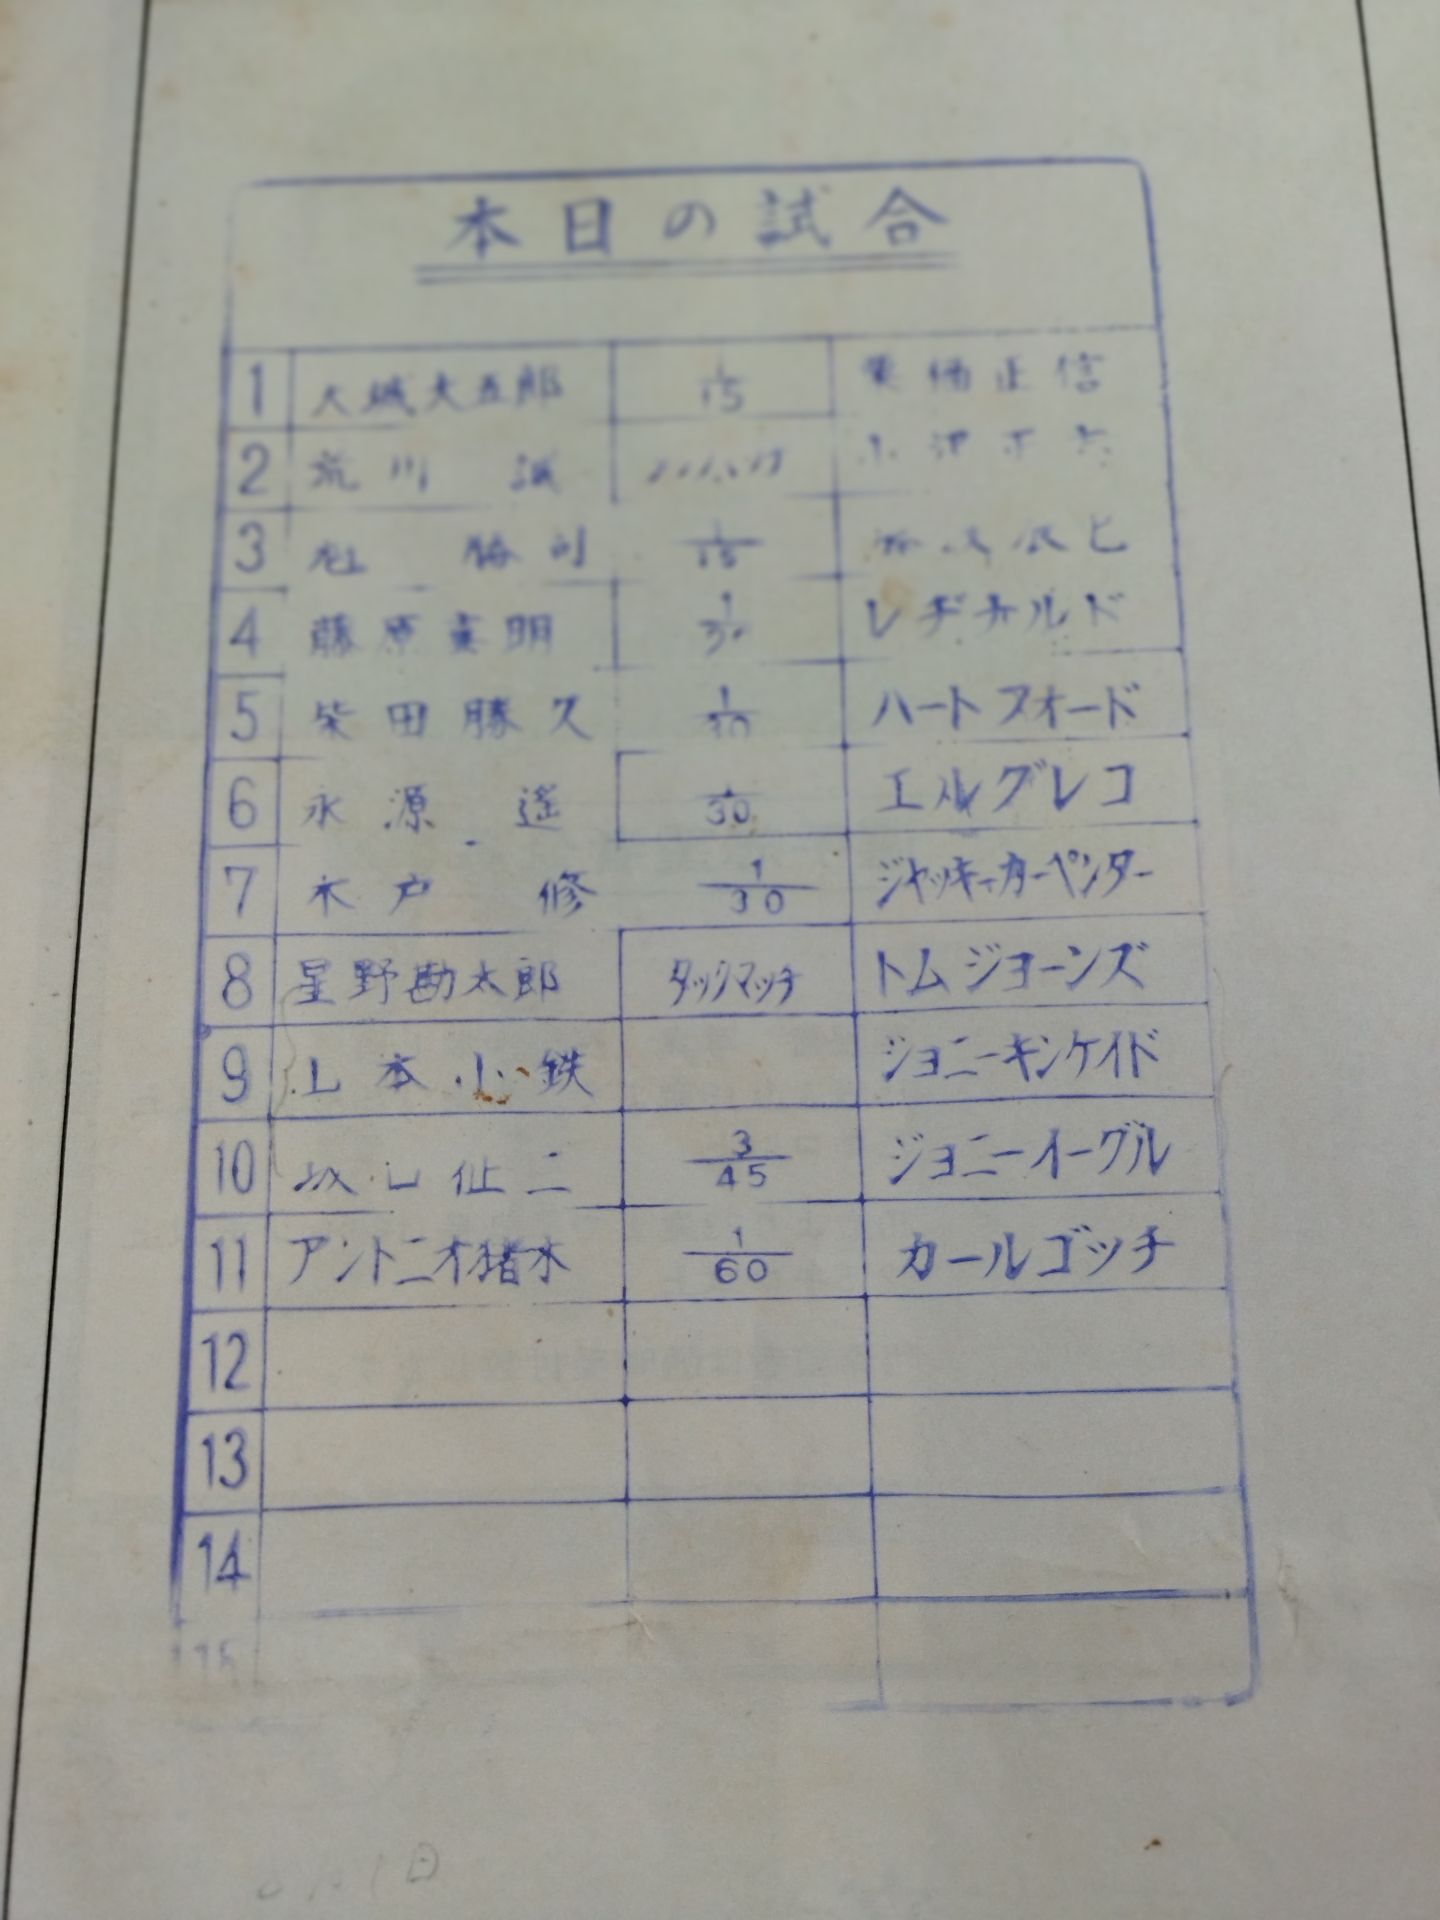 本日の試合
1 大城大五郎 1/15 正信
2 荒川 誠
3 勝利 1/15
4 藤原喜明 1/30 レヂナルド
5 柴田勝久 1/30 ハートフォード
6 永源 遙 1/30 エルグレコ
7 木戸 修 1/30 ジャッキーカーペンター
8 星野勘太郎 タッグマッチ トムジョーンズ
9 山本小鉄 ジョニーキンケイド
10 坂口征二 3/45 ジョニーイーグル
11 アントニオ猪木 1/60 カールゴッチ
12
13
14
15
日